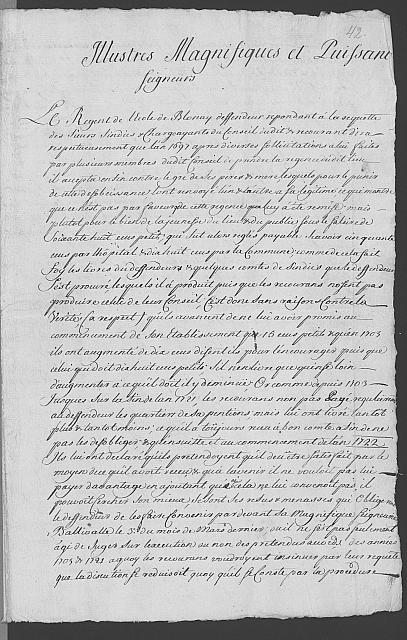 42
Illustres Magnifiques et Puissant
Seigneurs
Le Regent de l'ecole de Blonay deffendeur repondant à la requette
des Sieurs Sindics & Chargeayants du Conseil dudit & recourant dira
respectueusement que l'an 1697 apres diverses sollicitations a lui faites
par plusieurs membres dudit Conseil de prendre la regence dudit lieu
il accepta enfin contre le gré de ses pere & mere lesquels pour le punir
de cette desobeissance ont renvoyé l'un & l'autre a sa legitime ce qui montre
que ce n'est pas par faveur que cette regence luy a été remise mais
plutot pour le bien de la jeunesse du lieu & du public sous le salaire de
soixante huit ecus petits qui suit alors reglés payable scavoir cinquante
ecus par l'hôpital & dix huit ecus par la Commune comme de cela fait
foy les livres du deffendeurs & quelques comtes de Sindics que le deffendeur
s'est procuré lesquels il a produit puis que les recourans n'osent pas
produire celui de leur Conseil, C'est donc sans raisons contre la
verité (a respect) qu'ils avancent de ne lui avoir promis au
commencement de son Etablissement que 15 ecus petits & qu'en 1703
ils ont augmenté de dix ecus disent ils pour l'encourager puis que
celui qui doit dix huit ecus petits s'il n'en livre que quinse loin
d'augmenter a ce qu'il doit il y diminue Or comme depuis 1703
jusques sur la fin de l'an 1721 les recourans n'on pas payé regulierement
au deffendeur les quartier de sa pentions mais lui ont livré tantot
plus & tantot moins, ce qu'il a toujours receu à bon comte afin de ne
pas les desobliger & qu'ensuitte & au commencement de l'an 1722
Ils lui ont declaré qu'ils pretendoyent qu'il deut etre satisfait par le
moyen de ce qu'il avoit receu & qu'à l'avenir il ne vouloit pas lui
payer davantage en ajoutant que si cela ne lui convenoit pas il
pouvoit chercher son mieux, ce sont ses refus & menasses qui oblige
le deffendeur de les faire convenir pardevant Sa Magnifique Seigneurie
Ballivalle le 3e du mois de Mars dernier, ou il ne s'est pas seulement
agi de juger sur l'execution ou non des pretendus accords des années
1703 & 1721 a quoy les recourans voudroyent insinuer par leur requete
que la dicution se reduisoit quoy qu'il se conste par la procedure